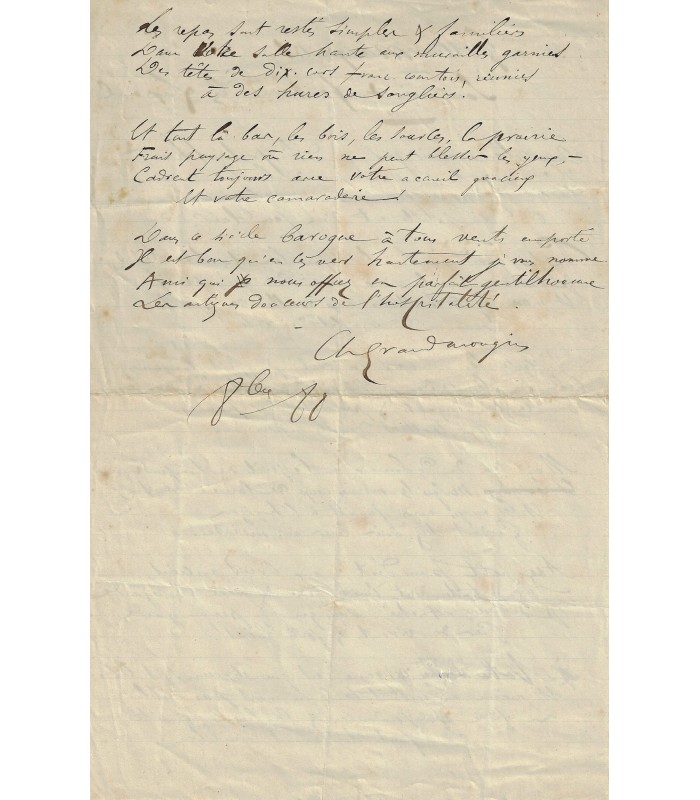 Les repas sont restés simples & familiers
Dans votre salle haute aux murailles garnies
Des têtes de dix-cors franc comtois, réunies
à des hures de sangliers!
Et tout là bas, les bois, les sources, la prairie
Frais paysage où rien ne peut blesser les yeux,
Cadrent toujours avec votre accueil gracieux
Et votre camaraderie!
Dans ce siècle baroque à tous vents emporté
Il est bon qu'en les vers hautement je vous nomme
Ami qui nous offrez en parfait gentilhomme
Les antiques douceurs de l'hospitalité.
Ch Grandmougin
8bre